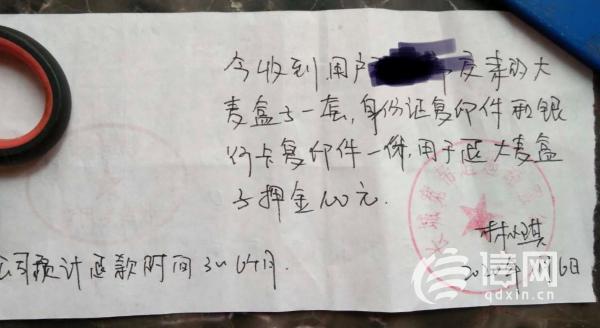 今收到用户 的大
麦盒子一套,身份证复印件和银
行卡复印件一份,用于退大麦盒
子押金100元.
公司预计退款时间3-6个月.
月6日
信网
qdxin.cn